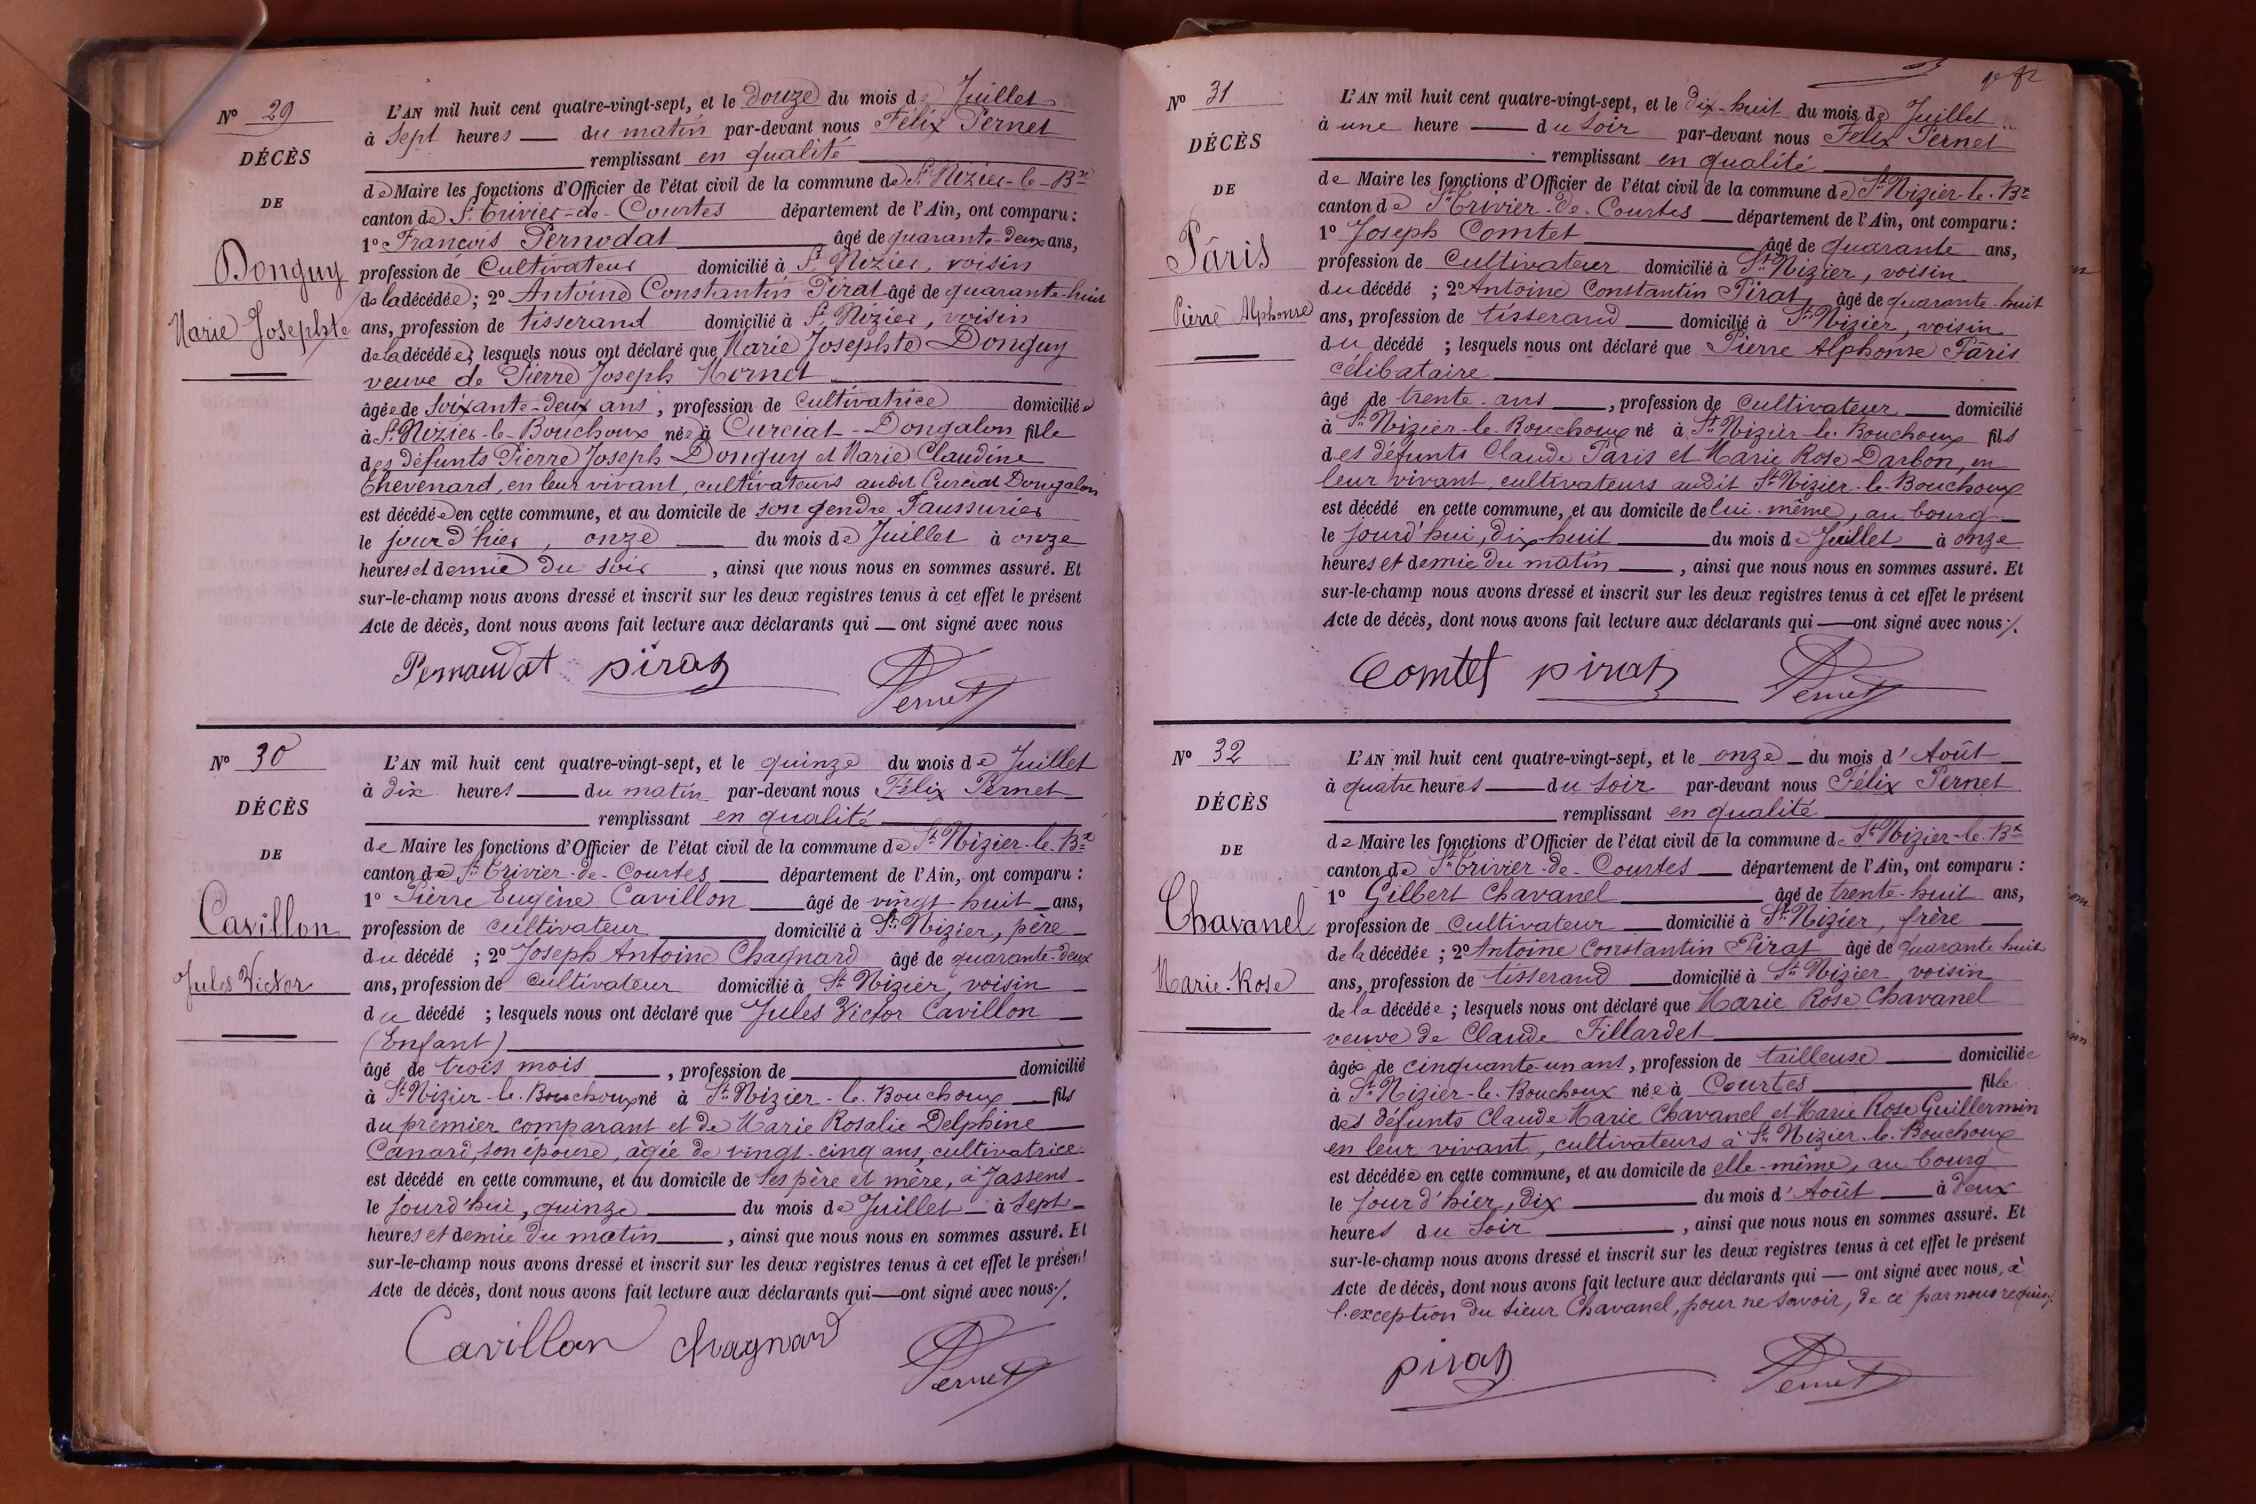 N° 29
DÉCÈS
DE
Donguy
Marie Josephte
L'AN mil huit cent quatre-vingt-sept, et le douze du mois de Juillet
à sept heures du matin par-devant nous Félix Pernet
remplissant en qualité
de Maire les fonctions d'Officier de l'état civil de la commune de St Nizier-le-Bx
canton de St Trivier-de-Courtes département de l'Ain, ont comparu :
1° François Pernodat âgé de quarante-deux ans,
profession de Cultivateur domicilié à St Nizier, voisin
de la décédée ; 2° Antoine Constantin Pirat âgé de quarante-huit
ans, profession de tisserand domicilié à St Nizier, voisin
de la décédée ; lesquels nous ont déclaré que Marie Josephte Donguy
veuve de Pierre Joseph Mornet
âgée de soixante-deux ans, profession de cultivatrice domiciliée
à St Nizier-le-Bouchoux née à Curciat-Dongalon fille
des défunts Pierre Joseph Donguy et Marie Claudine
Chevenard, en leur vivant, cultivateurs audit Curciat Dongalon
est décédée en cette commune, et au domicile de son gendre Faussurier
le jour d'hier, onze du mois de Juillet à onze
heures et demie du soir, ainsi que nous nous en sommes assuré. Et
sur-le-champ nous avons dressé et inscrit sur les deux registres tenus à cet effet le présent
Acte de décès, dont nous avons fait lecture aux déclarants qui — ont signé avec nous
Pernaudat pirat Pernet
N° 30
DÉCÈS
DE
Cavillon
Jules Victor
L'AN mil huit cent quatre-vingt-sept, et le quinze du mois de Juillet
à dix heures du matin par-devant nous Félix Pernet
remplissant en qualité
de Maire les fonctions d'Officier de l'état civil de la commune de St Nizier-le-Bx
canton de St Trivier-de-Courtes département de l'Ain, ont comparu :
1° Pierre Eugène Cavillon âgé de vingt-huit ans,
profession de cultivateur domicilié à St Nizier, père
du décédé ; 2° Joseph Antoine Chagnard âgé de quarante-deux
ans, profession de cultivateur domicilié à St Nizier, voisin
du décédé ; lesquels nous ont déclaré que Jules Victor Cavillon
(Enfant)
âgé de trois mois, profession de domicilié
à St Nizier-le-Bouchoux né à St Nizier-le-Bouchoux fils
du premier comparant et de Marie Rosalie Delphine
Canard, son épouse, âgée de vingt-cinq ans, cultivatrice
est décédé en cette commune, et au domicile de ses père et mère, à Jassens
le jourd'hui, quinze du mois de Juillet à sept
heures et demie du matin, ainsi que nous nous en sommes assuré. Et
sur-le-champ nous avons dressé et inscrit sur les deux registres tenus à cet effet le présent
Acte de décès, dont nous avons fait lecture aux déclarants qui — ont signé avec nous ./.
Cavillon chagnard Pernet
N° 31
DÉCÈS
DE
Pâris
Pierre Alphonse
L'AN mil huit cent quatre-vingt-sept, et le dix-huit du mois de Juillet
à une heure du soir par-devant nous Félix Pernet
remplissant en qualité
de Maire les fonctions d'Officier de l'état civil de la commune de St Nizier-le-Bx
canton de St Trivier-de-Courtes département de l'Ain, ont comparu :
1° Joseph Comtet âgé de quarante ans,
profession de cultivateur domicilié à St Nizier, voisin
du décédé ; 2° Antoine Constantin Pirat, âgé de quarante-huit
ans, profession de tisserand domicilié à St Nizier, voisin
du décédé ; lesquels nous ont déclaré que Pierre Alphonse Pâris
célibataire
âgé de trente ans, profession de cultivateur domicilié
à St Nizier-le-Bouchoux né à St Nizier-le-Bouchoux fils
des défunts Claude Paris et Marie Rose Darbon, en
leur vivant, cultivateurs audit St Nizier-le-Bouchoux
est décédé en cette commune, et au domicile de lui-même, au bourg
le jourd'hui, dix-huit du mois de Juillet à onze
heures et demie du matin, ainsi que nous nous en sommes assuré. Et
sur-le-champ nous avons dressé et inscrit sur les deux registres tenus à cet effet le présent
Acte de décès, dont nous avons fait lecture aux déclarants qui — ont signé avec nous ./.
Comtet pirat Pernet
N° 32
DÉCÈS
DE
Chavanel
Marie-Rose
L'AN mil huit cent quatre-vingt-sept, et le onze du mois d'Août
à quatre heures du soir par-devant nous Félix Pernet
remplissant en qualité
de Maire les fonctions d'Officier de l'état civil de la commune de St Nizier-le-Bx
canton de St Trivier-de-Courtes département de l'Ain, ont comparu :
1° Gilbert Chavanel âgé de trente-huit ans,
profession de cultivateur domicilié à St Nizier, frère
de la décédée ; 2° Antoine Constantin Pirat âgé de quarante huit
ans, profession de tisserand domicilié à St Nizier, voisin
de la décédée ; lesquels nous ont déclaré que Marie Rose Chavanel
veuve de Claude Fillardet
âgée de cinquante-un ans, profession de tailleuse domiciliée
à St Nizier-le-Bouchoux née à Courtes fille
des défunts Claude Marie Chavanel et Marie Rose Guillermin
en leur vivant, cultivateurs à St Nizier-le-Bouchoux
est décédée en cette commune, et au domicile de elle-même, au bourg
le jour d'hier, dix du mois d'Août à deux
heures du soir, ainsi que nous nous en sommes assuré. Et
sur-le-champ nous avons dressé et inscrit sur les deux registres tenus à cet effet le présent
Acte de décès, dont nous avons fait lecture aux déclarants qui — ont signé avec nous, à
l'exception du sieur Chavanel, pour ne savoir, de ce par nous requis ./.
pirat Pernet